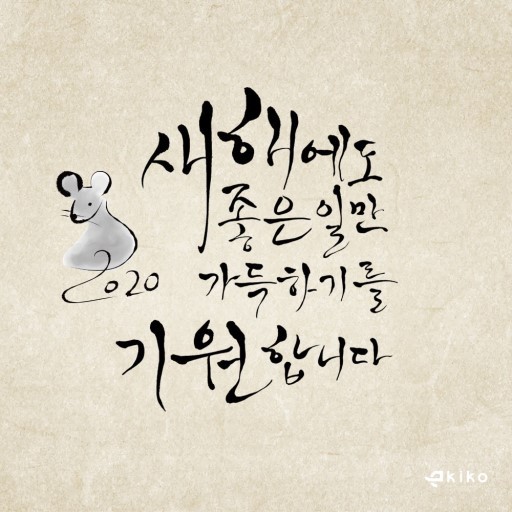 새해에도
좋은일만
2020 가득하기를
기원합니다
kiko